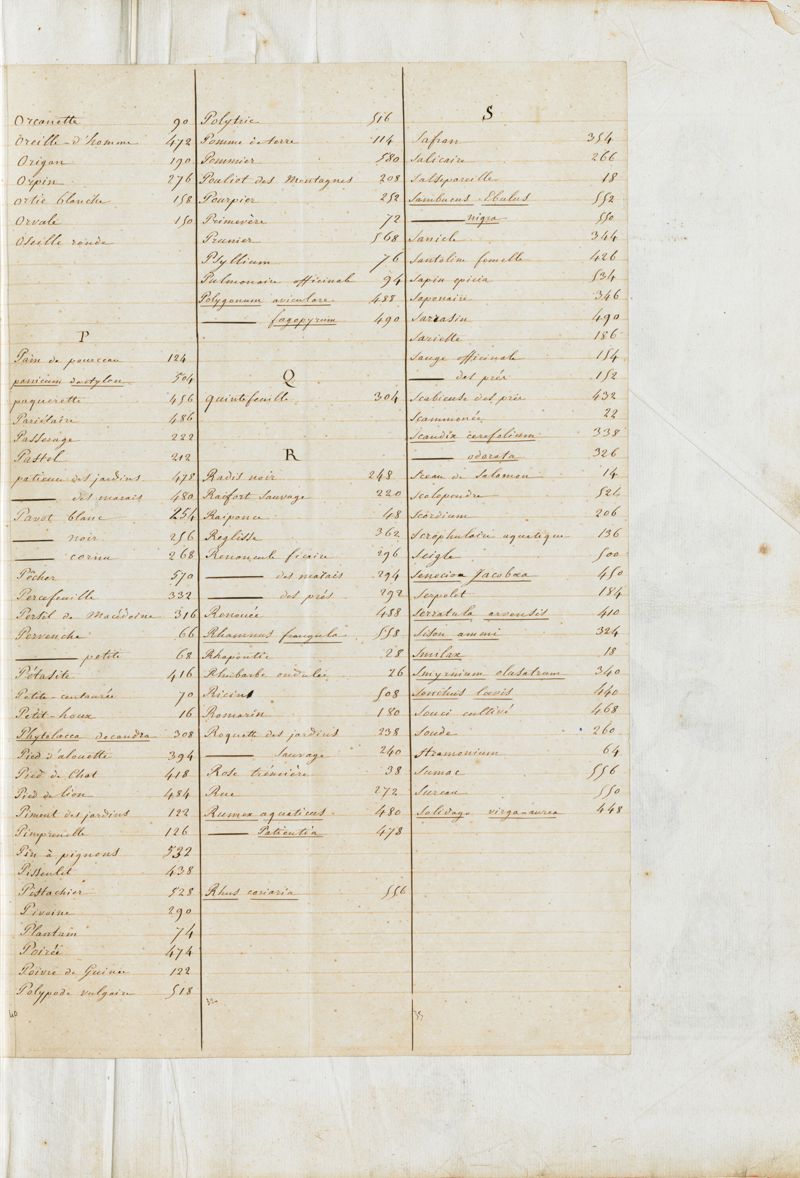 Orcanette 90
Oreille-d'homme 472
Origan 190
Orpin 276
Ortie blanche 158
Orvale 150
Oseille ronde
P
Pain de pourceau 124
panicum dactylon 504
paquerette 456
Pariétaire 486
Passerage 222
Pastel 212
patience des jardins 478
—— des marais 480
Pavot blanc 254
—— noir 256
—— cornu 268
Pêcher 570
Percefeuille 332
Persil de Macédoine 316
Pervenche 66
—— petite 68
Pétasite 416
Petite-centaurée 70
Petit-houx 16
Phytolacca decandra 308
Pied d'alouette 394
Pied de Chat 418
Pied de lion 484
Piment des jardins 122
Pimprenelle 126
Pin à pignons 532
Pissenlit 438
Pistachier 528
Pivoine 290
Plantain 74
Poirée 474
Poivre de Guinée 122
Polypode vulgaire 518
40
Polytric 516
Pomme de terre 114
Pommier 580
Pouliot des Montagnes 208
Pourpier 252
Primevère 72
Prunier 568
Psyllium 76
Pulmonaire officinale 94
Polygonum aviculare 488
—— fagopyrum 490
Q
quintefeuille 304
R
Radis noir 248
Raifort Sauvage 220
Raiponce 48
Reglisse 362
Renoncule ficaire 296
—— des marais 294
—— des prés 292
Renouée 488
Rhamnus frangula 558
Rhapontic 28
Rhubarbe ondulée 26
Ricin 508
Romarin 180
Roquette des jardins 238
—— Sauvage 240
Rose trémière 38
Rue 272
Rumex aquaticus 480
—— Patientia 478
Rhus coriaria 556
S
Safran 354
Salicaire 266
Salsepareille 18
Sambucus Ebulus 552
—— nigra 550
Sanicle 344
Santoline femelle 426
Sapin épicia 534
Saponaire 346
Sarrasin 490
Sariette 186
Sauge officinale 154
—— des prés 152
Scabieuse des prés 432
Scammonée 22
Scandix cerefolium 338
—— odorata 326
Sceau de Salomon 14
Scolopendre 524
Scordium 206
Scrophulaire aquatique 136
Seigle 500
Senecio Jacobæa 450
Serpolet 184
Serratula arvensis 410
Sison ammi 324
Smilax 18
Smyrnium olusatrum 340
Sonchus lævis 440
Souci cultivé 468
Soude 260
Stramonium 64
Sumac 556
Sureau 550
Solidago virga-aurea 448